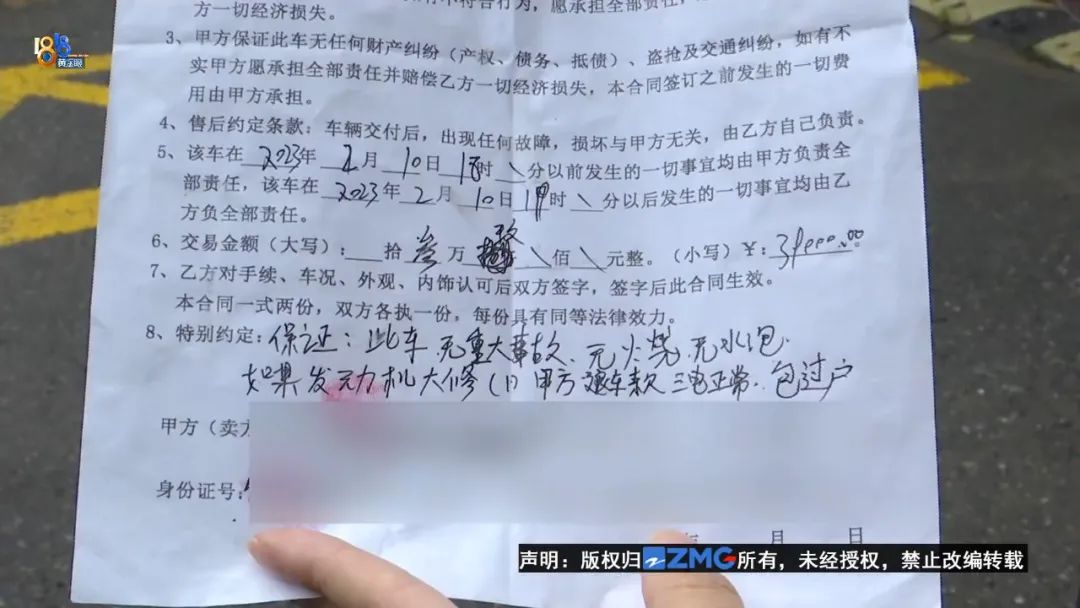 1818
黄金眼
方一切经济损失。
行为，愿承担全部责任，
3、甲方保证此车无任何财产纠纷（产权、债务、抵债）、盗抢及交通纠纷，如有不
实甲方愿承担全部责任并赔偿乙方一切经济损失，本合同签订之前发生的一切费
用由甲方承担。
4、售后约定条款：车辆交付后，出现任何故障，损坏与甲方无关，由乙方自己负责。
5、该车在2023年2月10日18时\分以前发生的一切事宜均由甲方负责全
部责任，该车在2023年2月10日19时\分以后发生的一切事宜均由乙
方负全部责任。
6、交易金额（大写）：拾叁万\佰\元整。（小写）￥：
7、乙方对手续、车况、外观、内饰认可后双方签字，签字后此合同生效。
本合同一式两份，双方各执一份，每份具有同等法律效力。
8、特别约定：保证：此车无重大事故、无火烧、无水泡.
如果发动机大修(1)甲方退车款 三电正常.包过户
甲方（卖方
身份证号：
月 日
声明：版权归ZMG所有，未经授权，禁止改编转载